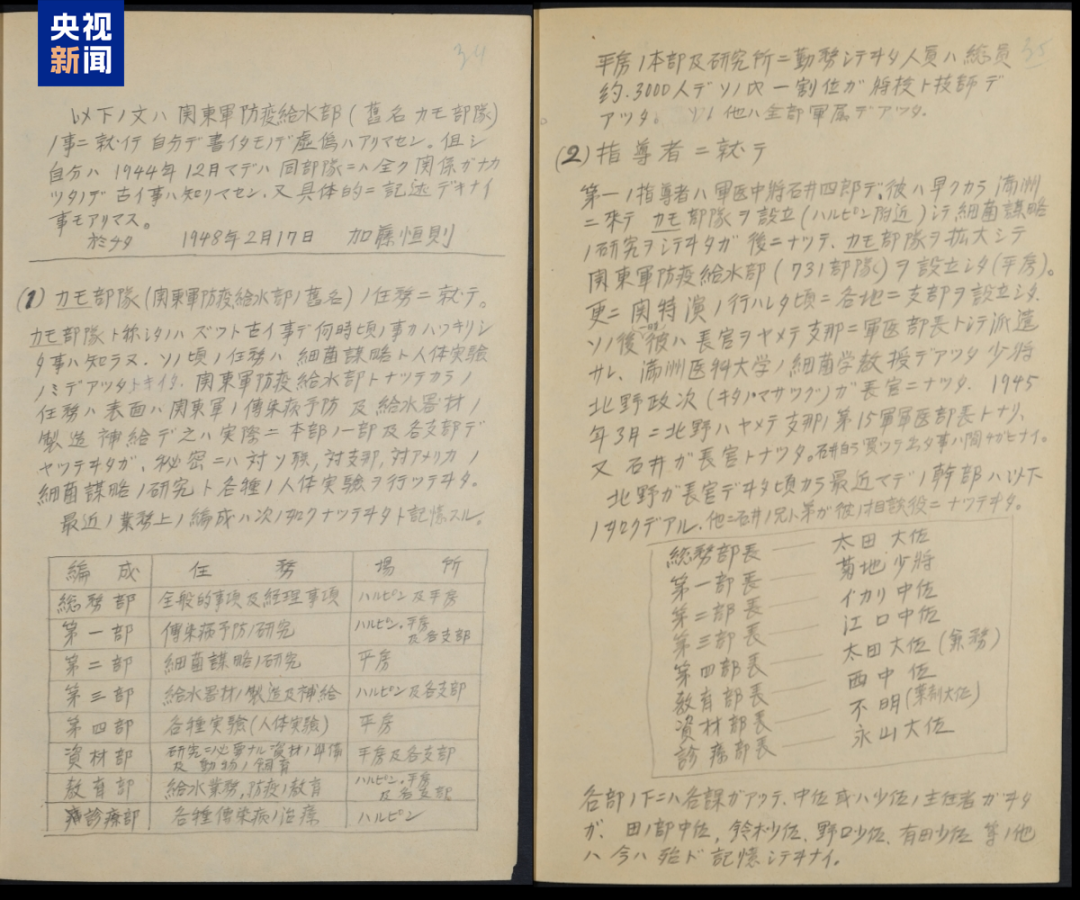 央视
新闻
34
以下ノ文ハ 関東軍防疫給水部(舊名 カモ部隊)
ノ事ニ就イテ 自分デ書イタモノデ虚偽ハアリマセン。但シ
自分ハ 1944年12月マデハ 同部隊ニハ全ク関係ガナカ
ツタノデ 古イ事ハ知リマセン.又具体的ニ記述デキナイ
事モアリマス。
於チタ 1948年2月17日 加藤恒則
(1) カモ部隊(関東軍防疫給水部ノ舊名)ノ任務ニ就テ。
カモ部隊ト称シタノハ ズツト古イ事デ何時頃ノ事カハツキリシ
タ事ハ知ラヌ.ソノ頃ノ任務ハ 細菌謀略ト人体実験
ノミデアツタトキイタ.関東軍防疫給水部トナツテカラノ
任務ハ 表面ハ関東軍ノ傳染病予防 及 給水器材ノ
製造 補給デ之ハ実際ニ本部ノ一部及各支部デ
ヤツテヰタガ、秘密ニハ対ソ聯,対支那,対アメリカノ
細菌謀略ノ研究ト各種ノ人体実験ヲ行ツテヰタ。
最近ノ業務上ノ編成ハ次ノ如クナツテヰタト記憶スル。
編成 任務 場所
総務部 全般的事項及経理事項 ハルピン及平房
第一部 傳染病予防ノ研究 ハルピン.平房及各支部
第二部 細菌謀略ノ研究 平房
第三部 給水器材ノ製造及補給 ハルピン及各支部
第四部 各種実験(人体実験) 平房
資材部 研究ニ必要ナル資材ノ準備及動物ノ飼育 平房及各支部
教育部 給水業務,防疫ノ教育 ハルピン.平房及各支部
診療部 各種傳染病ノ治療 ハルピン
35
平房ノ本部及研究所ニ勤務シテヰタ人員ハ総員
約.3000人デソノ内一割位ガ将校ト技師デ
アツタ。ソノ他ハ全部軍属デアツタ.
(2) 指導者ニ就テ
第一ノ指導者ハ軍医中将石井四郎デ、彼ハ早クカラ満洲
ニ来テ カモ部隊ヲ設立(ハルピン附近)シテ細菌謀略
ノ研究ヲシテヰタガ 後ニナツテ.カモ部隊ヲ拡大シテ
関東軍防疫給水部(731部隊)ヲ設立シタ(平房)。
更ニ関特演ノ行ハレタ頃ニ各地ニ支部ヲ設立シタ.
ソノ後彼ハ長官ヲヤメテ支那ニ軍医部長トシテ派遣
サレ、満洲医科大学ノ細菌学教授デアツタ少将
北野政次(キタノマサツグ)ガ長官ニナツタ.1945
年3月ニ北野ハヤメテ支那ノ第15軍軍医部長トナリ、
又石井ガ長官トナツタ。
北野ガ長官デヰタ頃カラ最近マデノ幹部ハ以下
ノ如クデアル.他ニ石井ノ兄ト弟ガ彼ノ相談役ニナツテヰタ。
総務部長 太田大佐
第一部長 菊地少将
第二部長 イカリ中佐
第三部長 江口中佐
第四部長 太田大佐(兼務)
教育部長 西中佐
資材部長 不明(薬剤大佐)
診療部長 永山大佐
各部ノ下ニハ各課ガアツテ.中佐或ハ少佐ノ主任者ガヰタ
ガ.田ノ部中佐,鈴木少佐,野口少佐,有田少佐等ノ他
ハ今ハ殆ド記憶シテヰナイ.